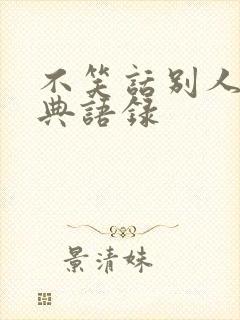 不笑話別人
典語錄
景清妹